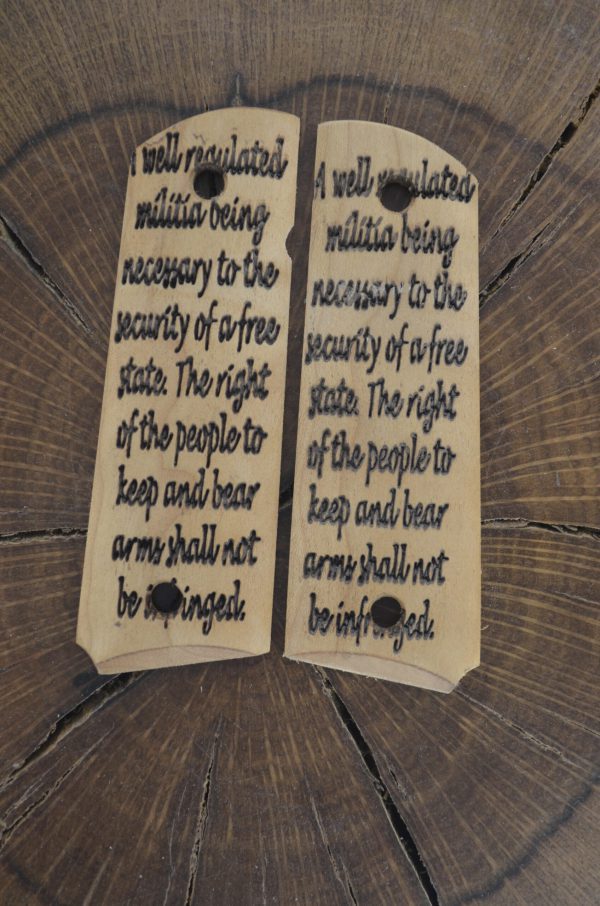 A well regulated
militia being
necessary to the
security of a free
state. The right
of the people to
keep and bear
arms shall not
be infringed.
A well regulated
militia being
necessary to the
security of a free
state. The right
of the people to
keep and bear
arms shall not
be infringed.